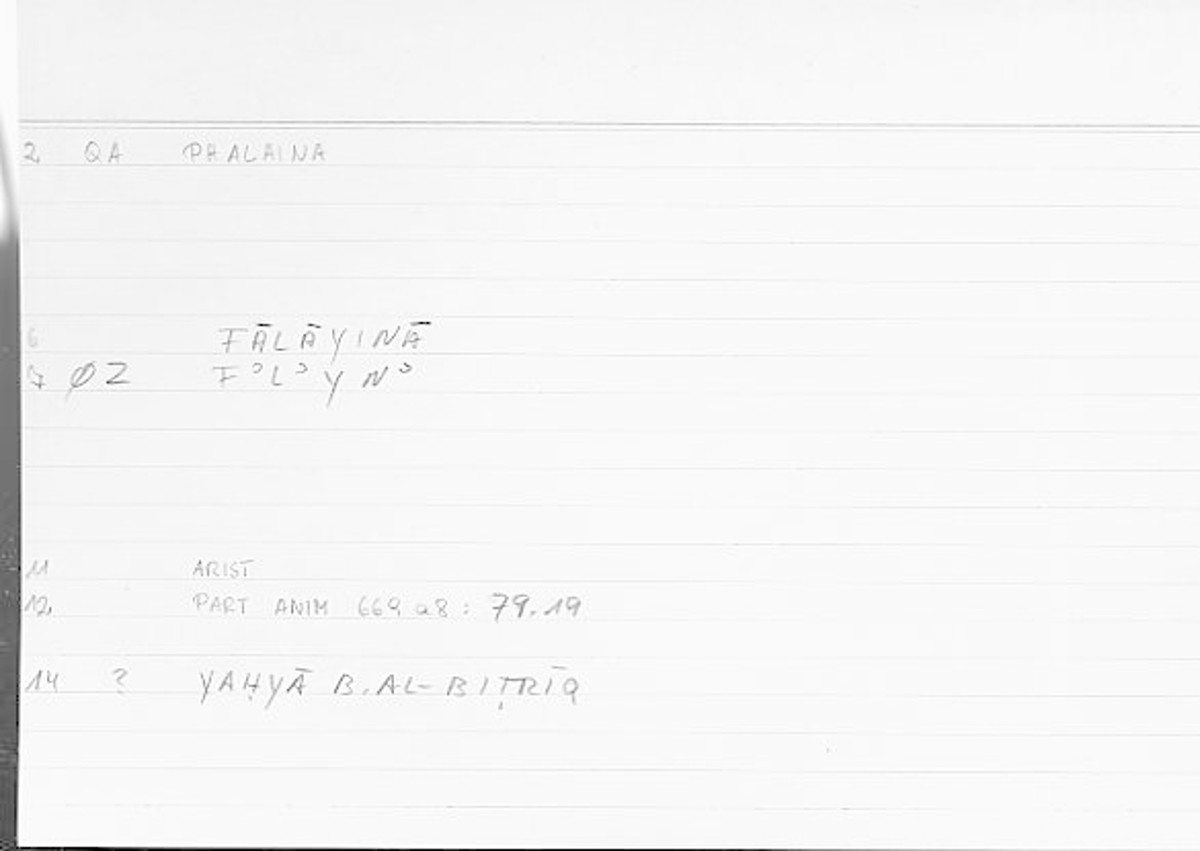 2 QA PHALAINA
6 FĀLĀYINĀ
7 ØZ FʾLʾYNʾ
11 ARIST
12 PART ANIM 669 a8: 79.19
14 ? YAḤYĀ B. AL-BIṬRĪQ